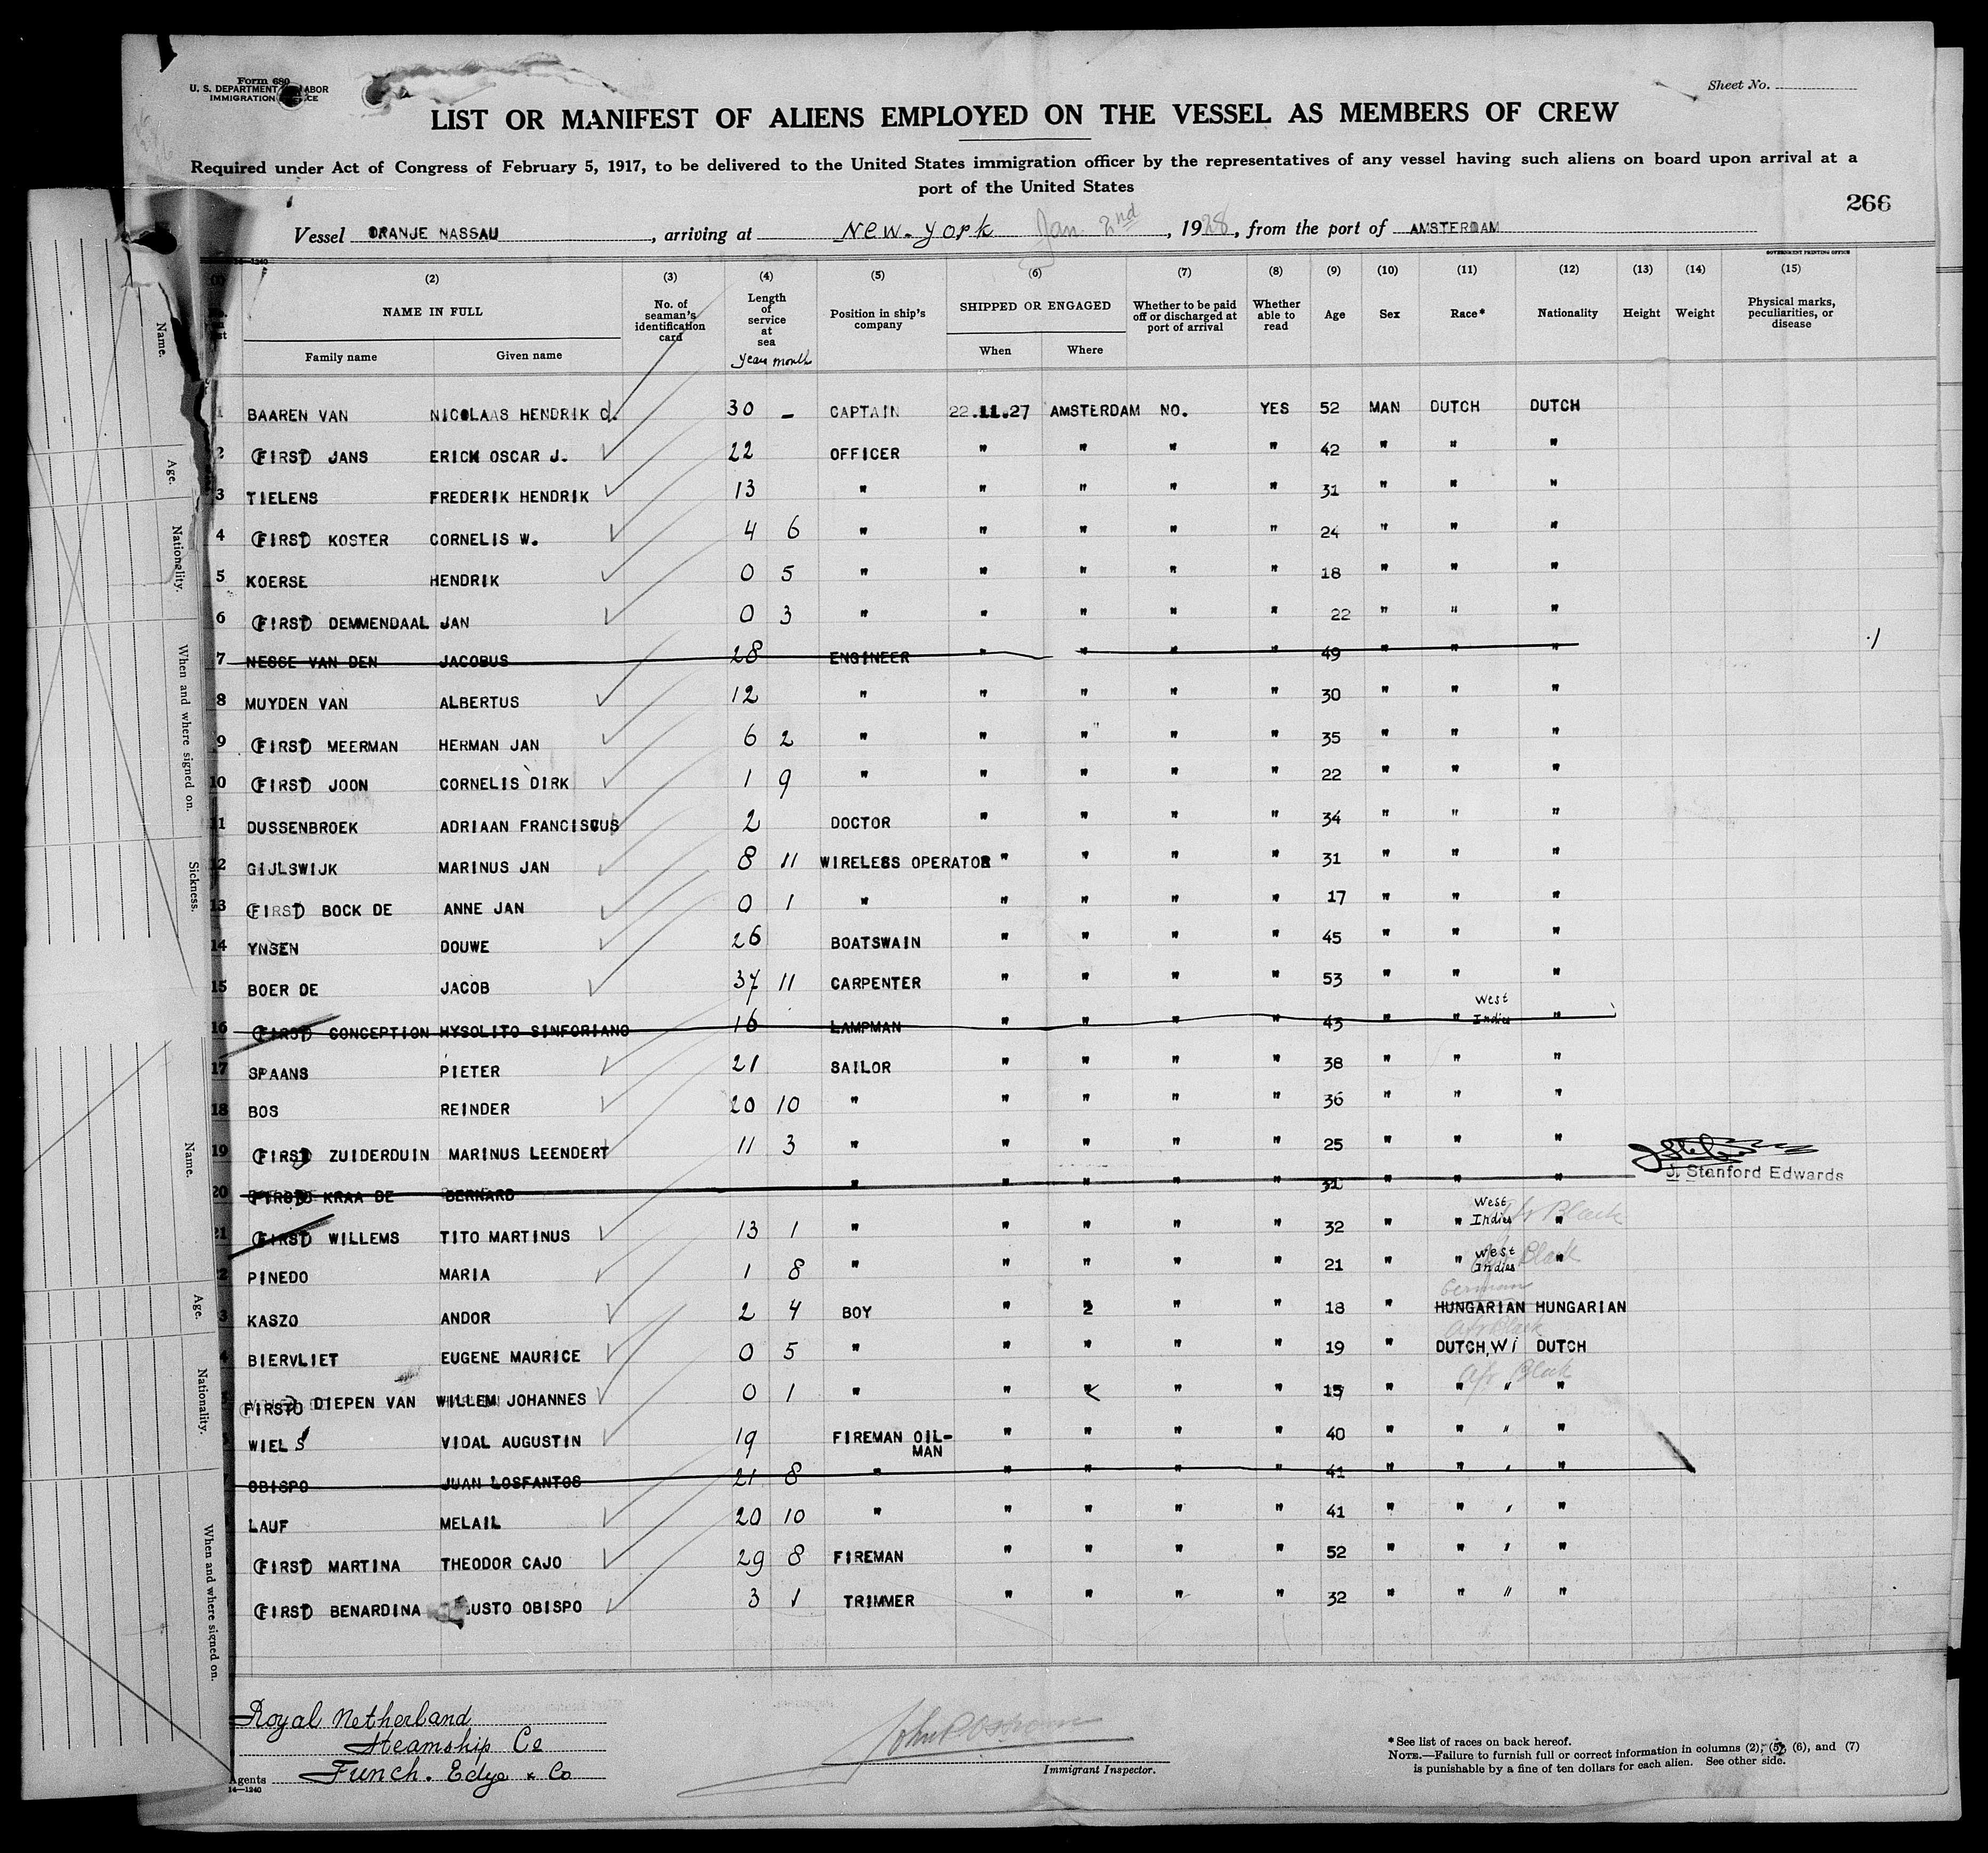 Form 680
U. S. DEPARTMENT LABOR
IMMIGRATION
Sheet No.
LIST OR MANIFEST OF ALIENS EMPLOYED ON THE VESSEL AS MEMBERS OF CREW
Required under Act of Congress of February 5, 1917, to be delivered to the United States immigration officer by the representatives of any vessel having such aliens on board upon arrival at a
port of the United States
266
Vessel ORANJE NASSAU, arriving at New-York Jan 2nd, 1928, from the port of AMSTERDAM
14—1240
GOVERNMENT PRINTING OFFICE
(2) (3) (4) (5) (6) (7) (8) (9) (10) (11) (12) (13) (14) (15)
NAME IN FULL
Family name Given name
No. of seaman's identification card
Length of service at sea
years month
Position in ship's company
SHIPPED OR ENGAGED
When Where
Whether to be paid off or discharged at port of arrival
Whether able to read
Age Sex Race* Nationality Height Weight
Physical marks, peculiarities, or disease
1 BAAREN VAN NICOLAAS HENDRIK C. 30 - CAPTAIN 22.11.27 AMSTERDAM NO. YES 52 MAN DUTCH DUTCH
2 (FIRST) JANS ERICH OSCAR J. 22 OFFICER " " " " 42 " " "
3 TIELENS FREDERIK HENDRIK 13 " " " " " 31 " " "
4 (FIRST) KOSTER CORNELIS W. 4 6 " " " " " 24 " " "
5 KOERSE HENDRIK 0 5 " " " " " 18 " " "
6 (FIRST) DEMMENDAAL JAN 0 3 " " " " " 22 " " "
7 NESSE VAN DEN JACOBUS 28 ENGINEER " " " " 49 " " "
8 MUYDEN VAN ALBERTUS 12 " " " " " 30 " " "
9 (FIRST) MEERMAN HERMAN JAN 6 2 " " " " " 35 " " "
10 (FIRST) JOON CORNELIS DIRK 1 9 " " " " " 22 " " "
11 DUSSENBROEK ADRIAAN FRANCISCUS 2 DOCTOR " " " " 34 " " "
12 GIJLSWIJK MARINUS JAN 8 11 WIRELESS OPERATOR " " " " 31 " " "
13 (FIRST) BOCK DE ANNE JAN 0 1 " " " " " 17 " " "
14 YNSEN DOUWE 26 BOATSWAIN " " " " 45 " " "
15 BOER DE JACOB 37 11 CARPENTER " " " " 53 " " "
16 (FIRST) CONCEPTION HYSOLITO SINFORIANO 16 LAMPMAN " " " " 43 " " West Indies "
17 SPAANS PIETER 21 SAILOR " " " " 38 " " "
18 BOS REINDER 20 10 " " " " " 36 " " "
19 (FIRST) ZUIDERDUIN MARINUS LEENDERT 11 3 " " " " " 25 " " "
J. Stanford Edwards
20 (FIRST) KRAA DE BERNARD " " " " " 31 " " "
21 (FIRST) WILLEMS TITO MARTINUS 13 1 " " " " " 32 " " West Indies " Afr Black
2 PINEDO MARIA 1 8 " " " " " 21 " " West Indies " Black
German
3 KASZO ANDOR 2 4 BOY " 2 " " 18 " HUNGARIAN HUNGARIAN
Afr Black
4 BIERVLIET EUGENE MAURICE 0 5 " " " " " 19 " DUTCH, Wi DUTCH
Afr Black
5 (FIRST) DIEPEN VAN WILLEM JOHANNES 0 1 " " " " " 15 " " " "
WIELS VIDAL AUGUSTIN 19 FIREMAN OIL-MAN " " " " 40 " " " "
OBISPO JUAN LOSFANTOS 21 8 " " " " " 41 " " " "
LAUF MELAIL 20 10 " " " " " 41 " " " "
(FIRST) MARTINA THEODOR CAJO 29 8 FIREMAN " " " " 52 " " " "
(FIRST) BENARDINA USTO OBISPO 3 1 TRIMMER " " " " 32 " " " "
Royal Netherland
Steamship Co
Agents Funch. Edye & Co
14—1240
Immigrant Inspector.
* See list of races on back hereof.
NOTE.—Failure to furnish full or correct information in columns (2), (5), (6), and (7)
is punishable by a fine of ten dollars for each alien. See other side.
Name.
Age.
Nationality.
When and where signed on.
Sickness.
Name.
Age.
Nationality.
When and where signed on.